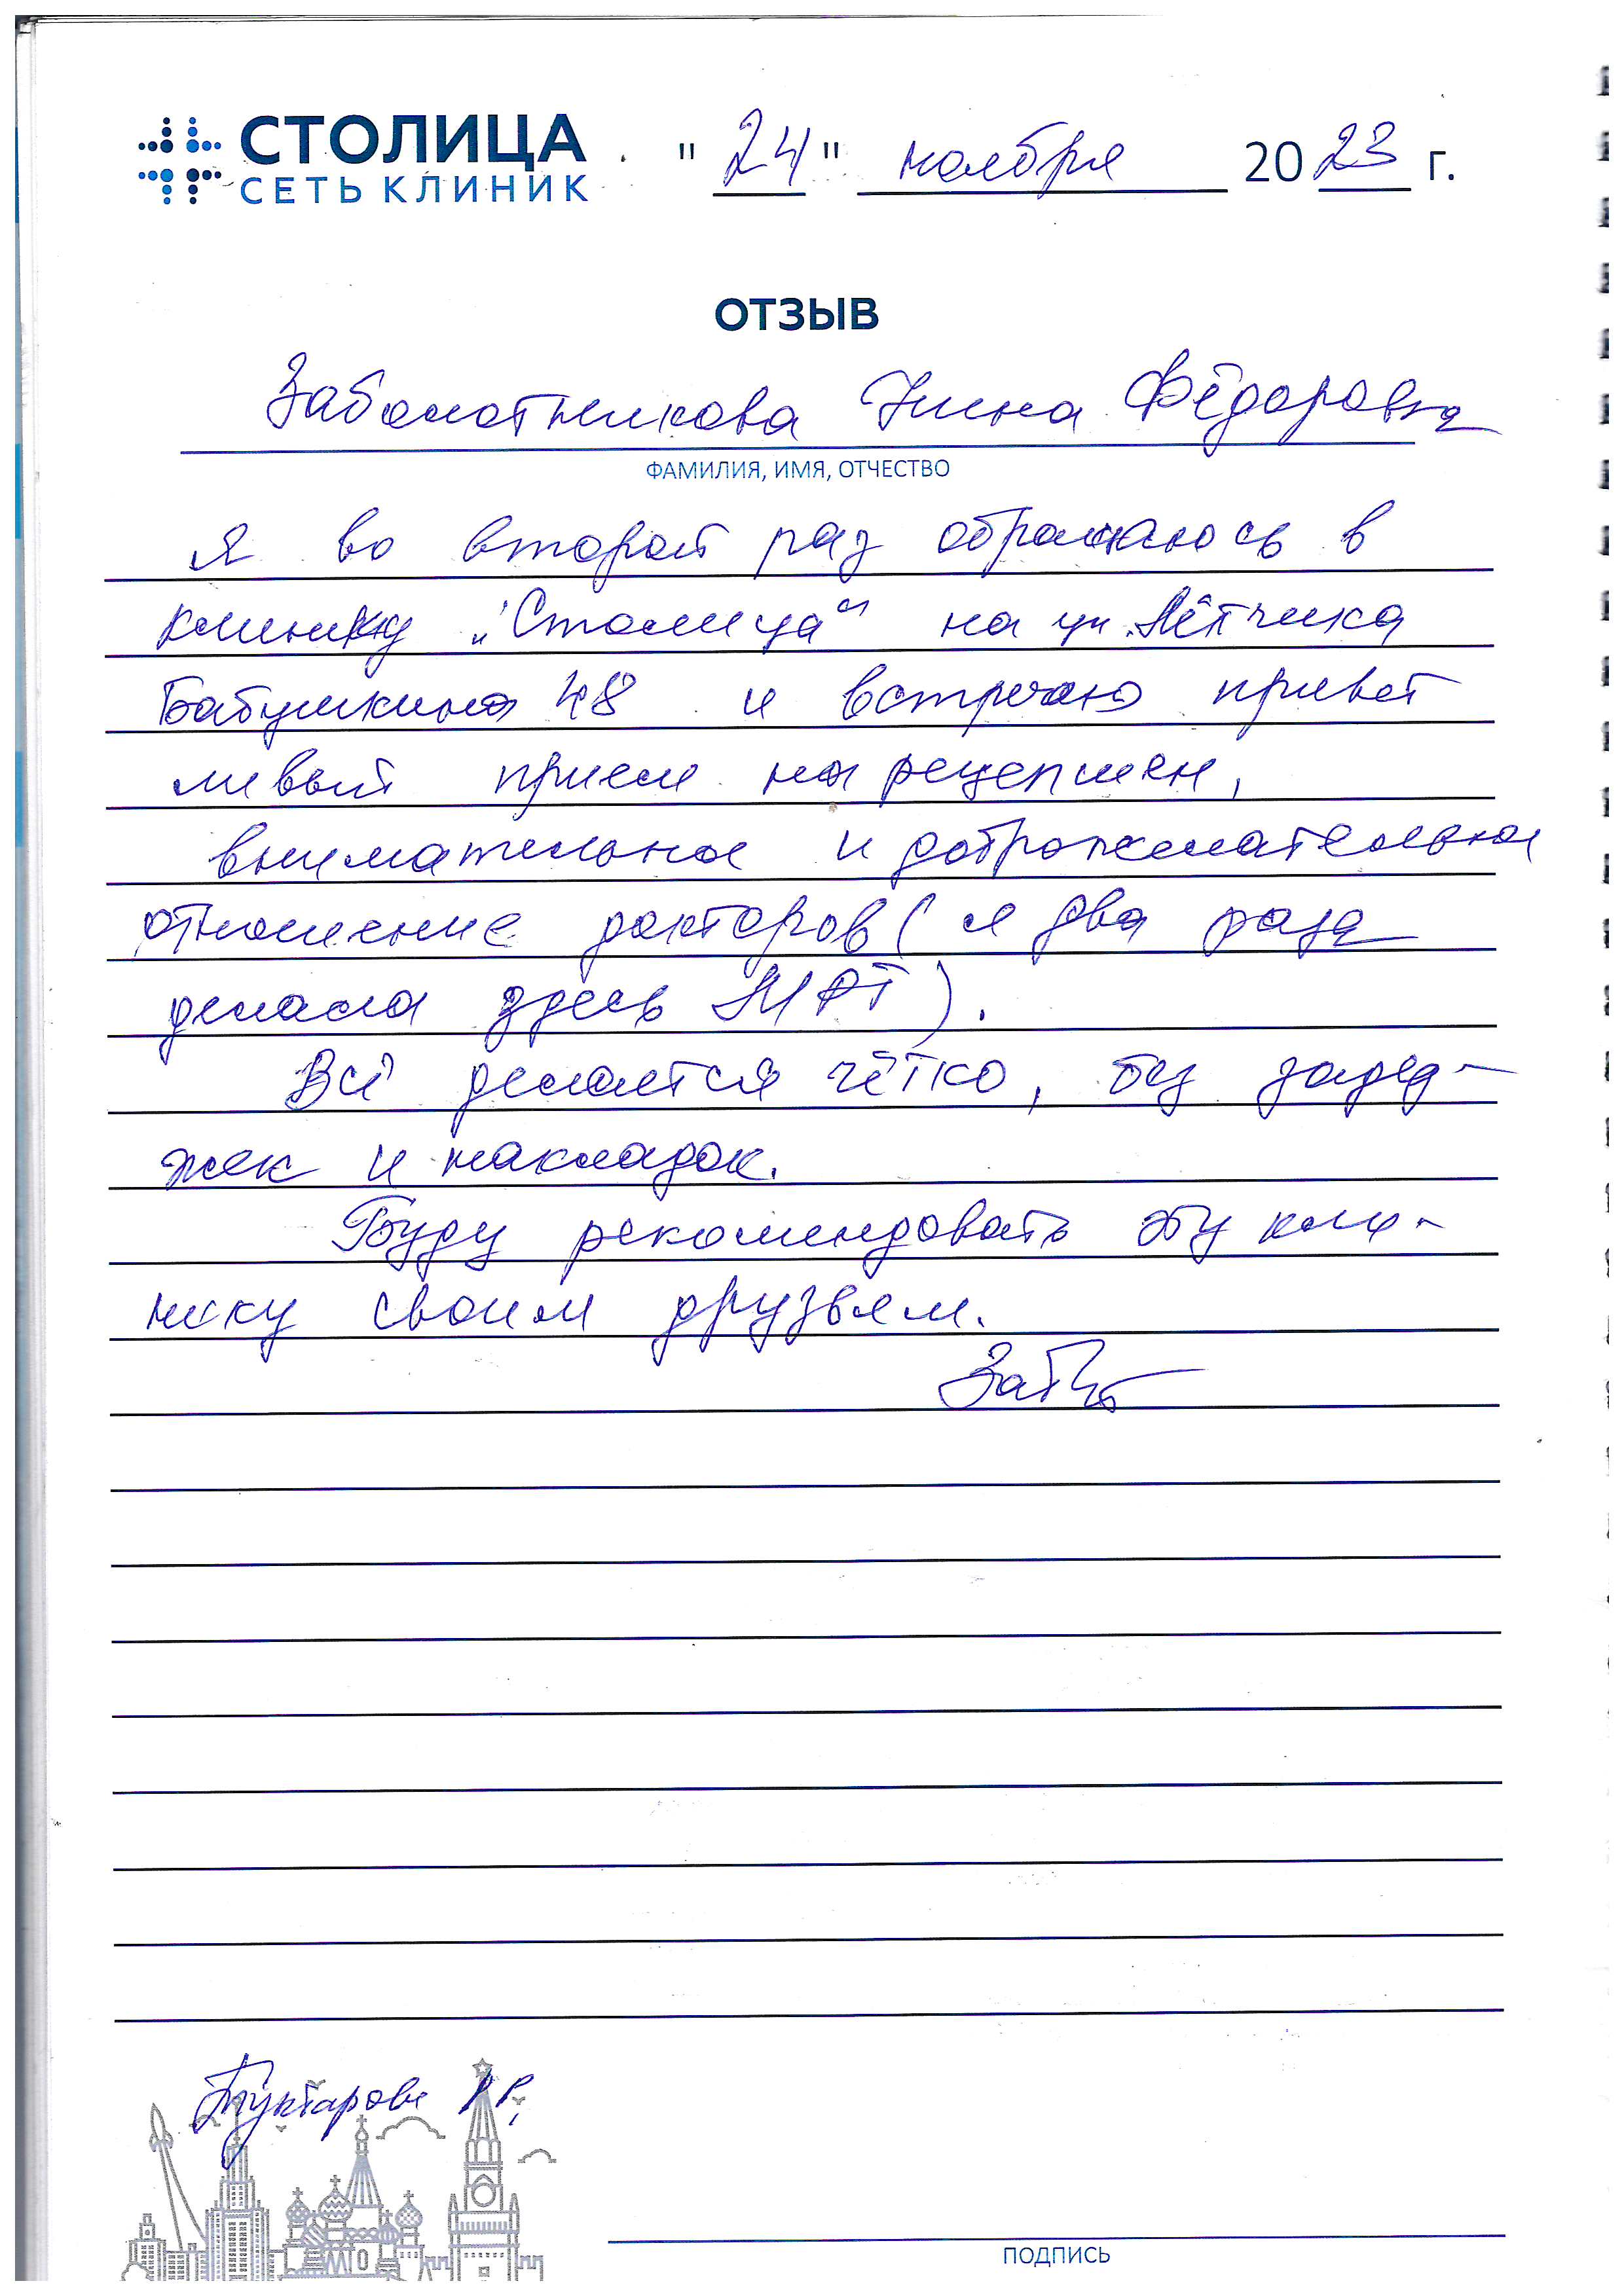 СТОЛИЦА
СЕТЬ КЛИНИК
"24" ноября 2023 г.
ОТЗЫВ
Заболотникова Нина Фёдоровна
ФАМИЛИЯ, ИМЯ, ОТЧЕСТВО
Я во второй раз обращаюсь в
клинику „Столица“ на ул. Лётчика
Бабушкина 48 и встречаю привет
ливый прием на рецепшен,
внимательное и доброжелательное
отношение докторов ( я два раза
делала здесь МРТ ).
Всё делается чётко, без задер-
жек и накладок.
Буду рекомендовать эту кли-
нику своим друзьям.
ПОДПИСЬ